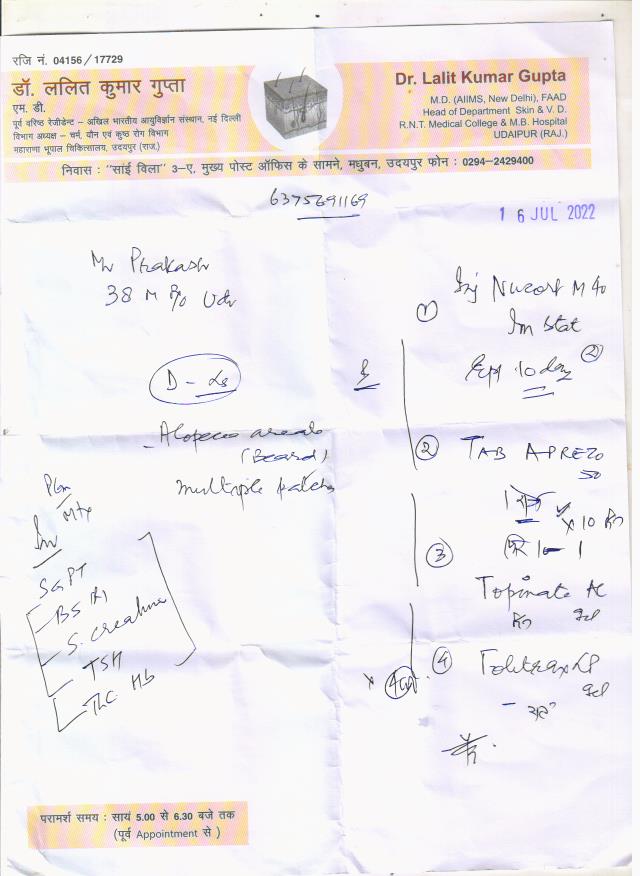 रजि नं. 04156/17729
डॉ. ललित कुमार गुप्ता
एम. डी.
पूर्व वरिष्ठ रेजीडेण्ट - अखिल भारतीय आयुर्विज्ञान संस्थान, नई दिल्ली
विभाग अध्यक्ष - चर्म, यौन एवं कुष्ठ रोग विभाग
महाराणा भूपाल चिकित्सालय, उदयपुर (राज.)
Dr. Lalit Kumar Gupta
M.D. (AIIMS, New Delhi), FAAD
Head of Department Skin & V. D.
R.N.T. Medical College & M.B. Hospital
UDAIPUR (RAJ.)
निवास : "सांई विला" 3-ए, मुख्य पोस्ट ऑफिस के सामने, मधुबन, उदयपुर फोन : 0294-2429400
6375691169
16 JUL 2022
Mr Prakash
38 M R/o Udr
Alopecia areata
(Beard)
multiple patches
Inv
SGPT
BS (R)
S. Creatinine
TSH
TLC Hb
① Inj Nucort M 40
Im Stat
10 day ②
② TAB APREZO
x 10
1 - 1
③ Topinate
gel
④
gel
परामर्श समय : सायं 5.00 से 6.30 बजे तक
(पूर्व Appointment से)